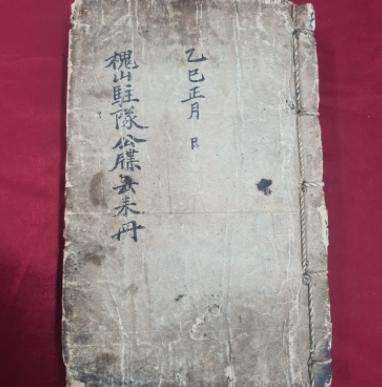 乙巳正月 日
槐山駐隊公牒去来冊